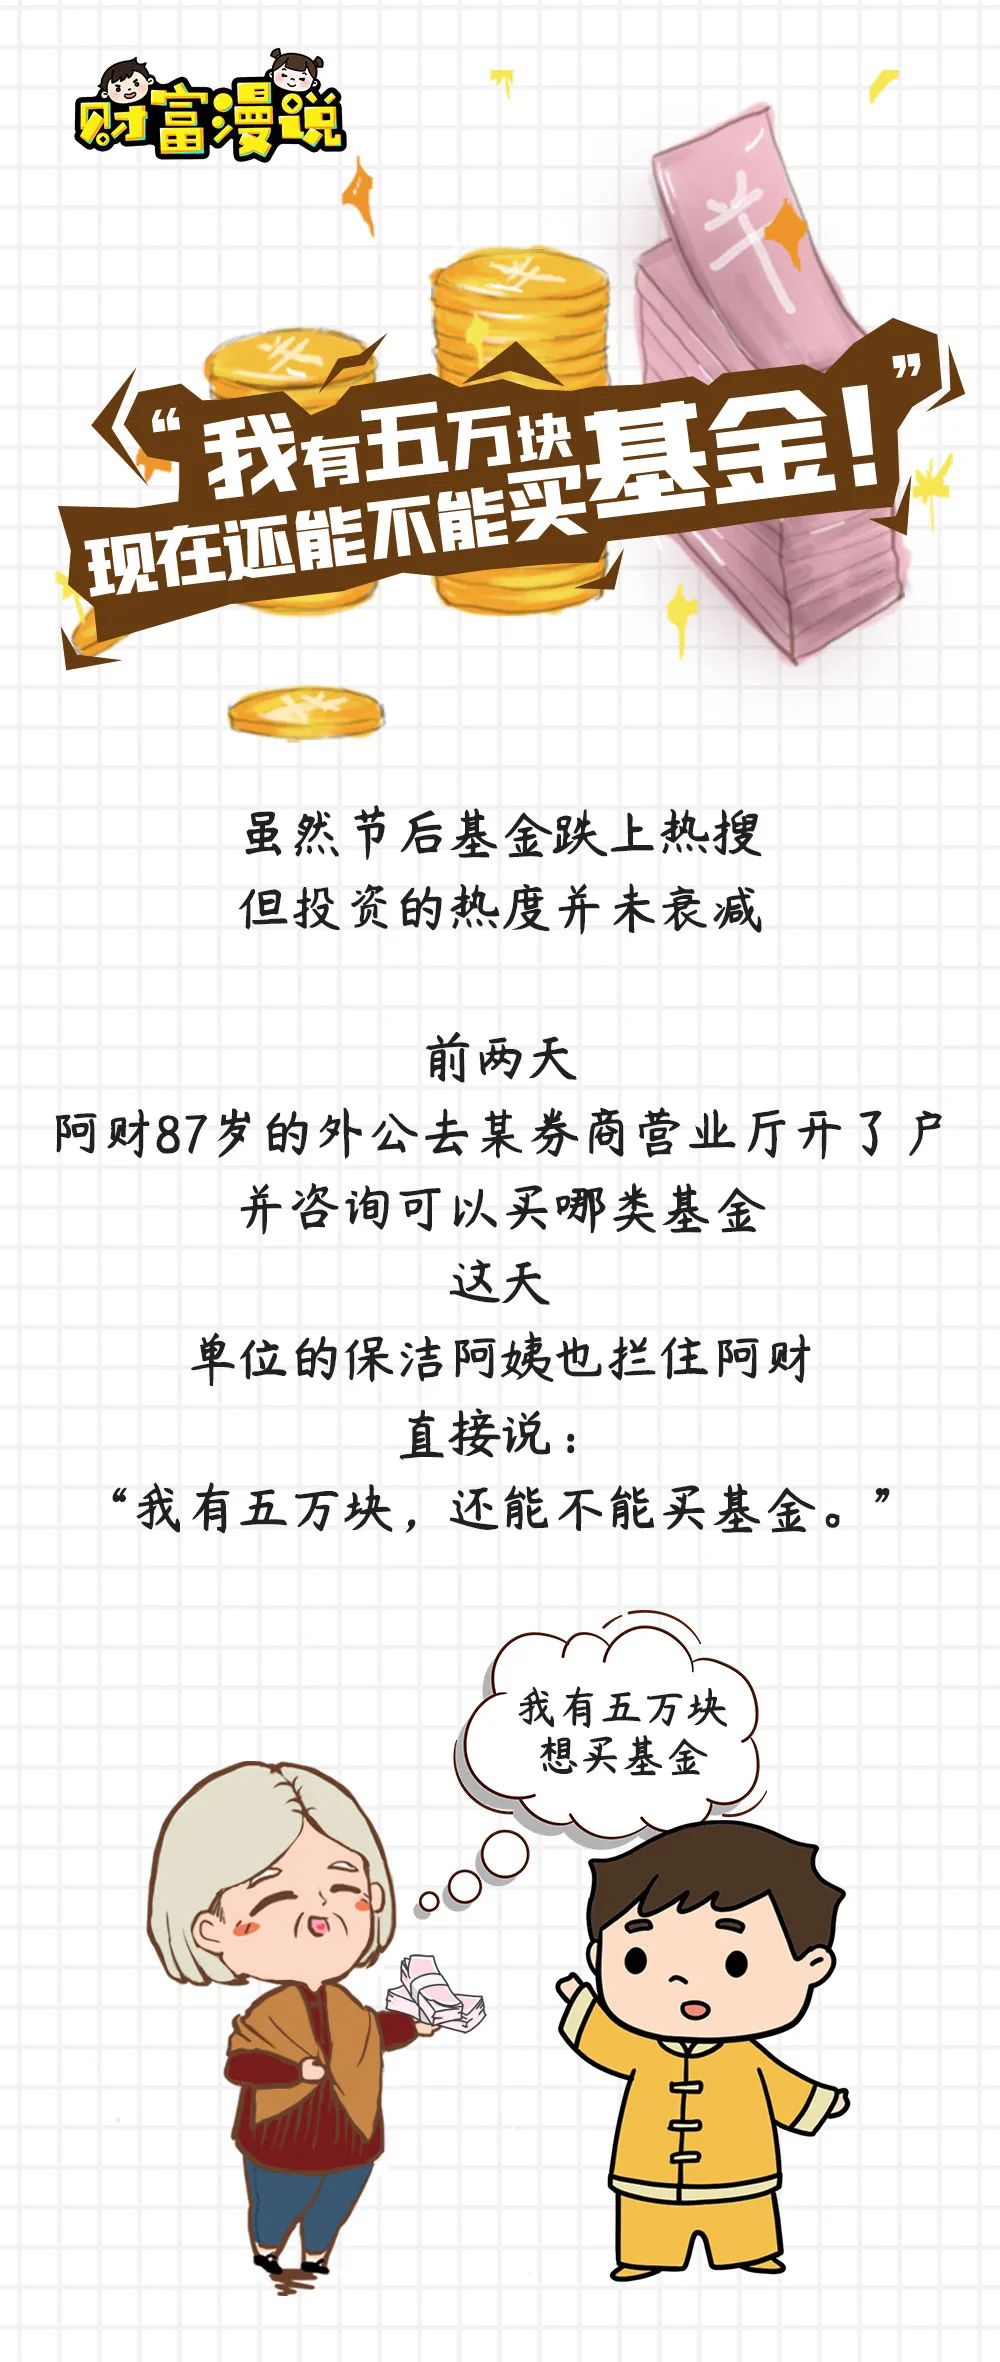 财富漫说
“我有五万块
现在还能不能买基金！”
虽然节后基金跌上热搜
但投资的热度并未衰减
前两天
阿财87岁的外公去某券商营业厅开了户
并咨询可以买哪类基金
这天
单位的保洁阿姨也拦住阿财
直接说：
“我有五万块，还能不能买基金。”
我有五万块
想买基金